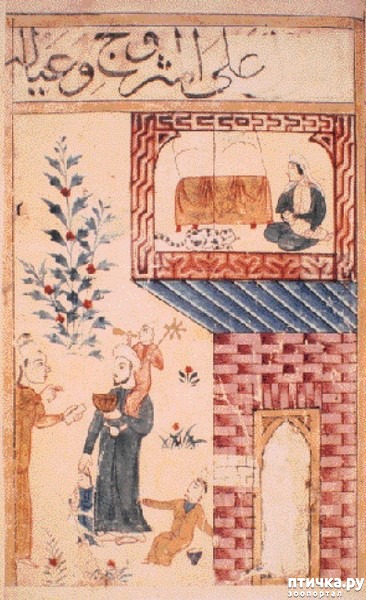 على المتزوج وعياله
птичка.ру
зоопортал